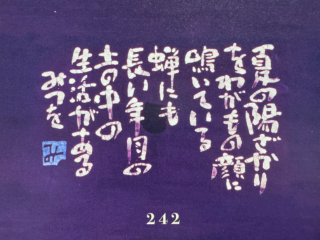 夏の陽ざかり
をわがもの顔に
鳴いている
蝉にも
長い年月の
土の中の
生活がある
みつを
242